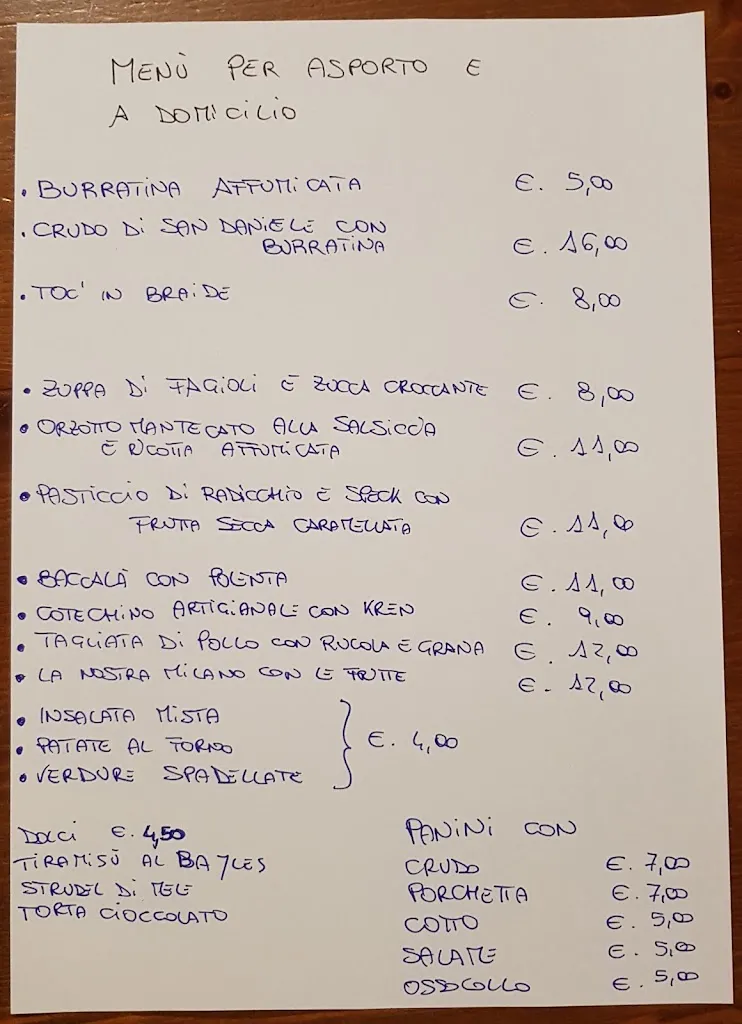 MENÙ PER ASPORTO E
A DOMICILIO
• BURRATINA AFFUMICATA €. 5,00
• CRUDO DI SAN DANIELE CON
BURRATINA €. 16,00
• TOC' IN BRAIDE €. 8,00
• ZUPPA DI FAGIOLI E ZUCCA CROCCANTE €. 8,00
• ORZOTTO MANTECATO ALLA SALSICCIA
E RICOTTA AFFUMICATA €. 11,00
• PASTICCIO DI RADICCHIO E SPECK CON
FRUTTA SECCA CARAMELLATA €. 11,00
• BACCALÀ CON POLENTA €. 11,00
• COTECHINO ARTIGIANALE CON KREN €. 9,00
• TAGLIATA DI POLLO CON RUCOLA E GRANA €. 12,00
• LA NOSTRA MILANO CON LE FRITTE €. 12,00
• INSALATA MISTA
• PATATE AL FORNO €. 4,00
• VERDURE SPADELLATE
DOLCI €. 4,50
TIRAMISÙ AL BAYLES
STRUDEL DI MELE
TORTA CIOCCOLATO
PANINI CON
CRUDO €. 7,00
PORCHETTA €. 7,00
COTTO €. 5,00
SALAME €. 5,00
OSSOCOLLO €. 5,00